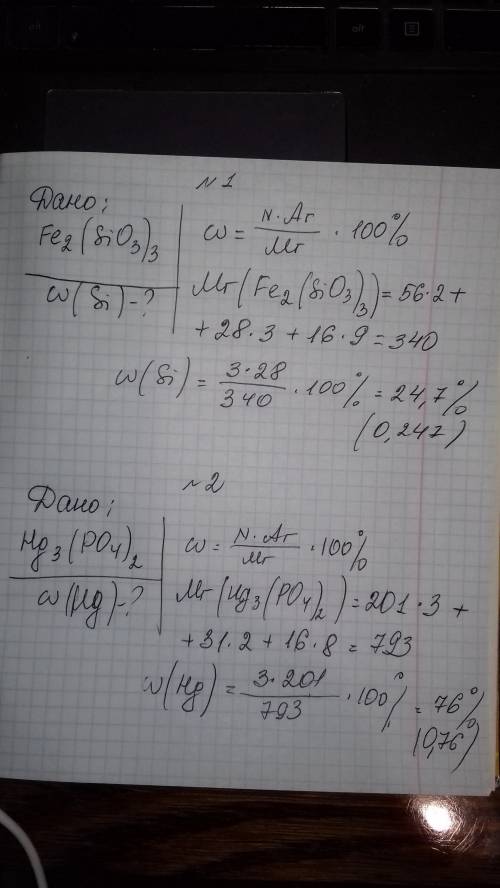 №1
Дано:
Fe₂(SiO₃)₃
ω(Si)-?
ω = N·Ar / Mr · 100%
Mr(Fe₂(SiO₃)₃) = 56·2 +
+ 28·3 + 16·9 = 340
ω(Si) = 3·28 / 340 · 100% = 24,7%
(0,247)
№2
Дано:
Hg₃(PO₄)₂
ω(Hg)-?
ω = N·Ar / Mr · 100%
Mr(Hg₃(PO₄)₂) = 201·3 +
+ 31·2 + 16·8 = 793
ω(Hg) = 3·201 / 793 · 100% = 76%
(0,76)